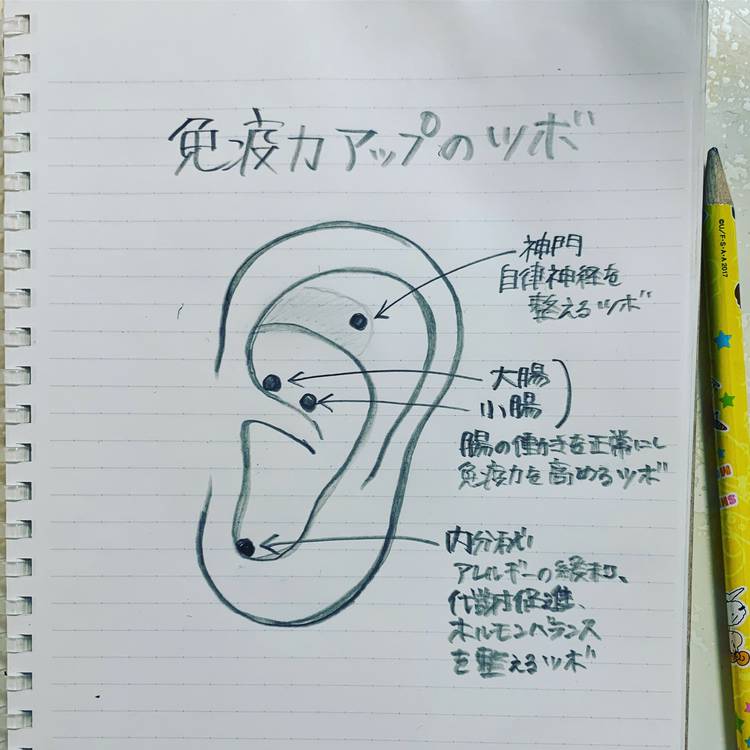 免疫力アップのツボ
神門
自律神経を
整えるツボ
大腸
小腸
腸の働きを正常にし
免疫力を高めるツボ
内分泌
アレルギーの緩和、
代謝促進、
ホルモンバランス
を整えるツボ
©U/F・S・A・A 2017